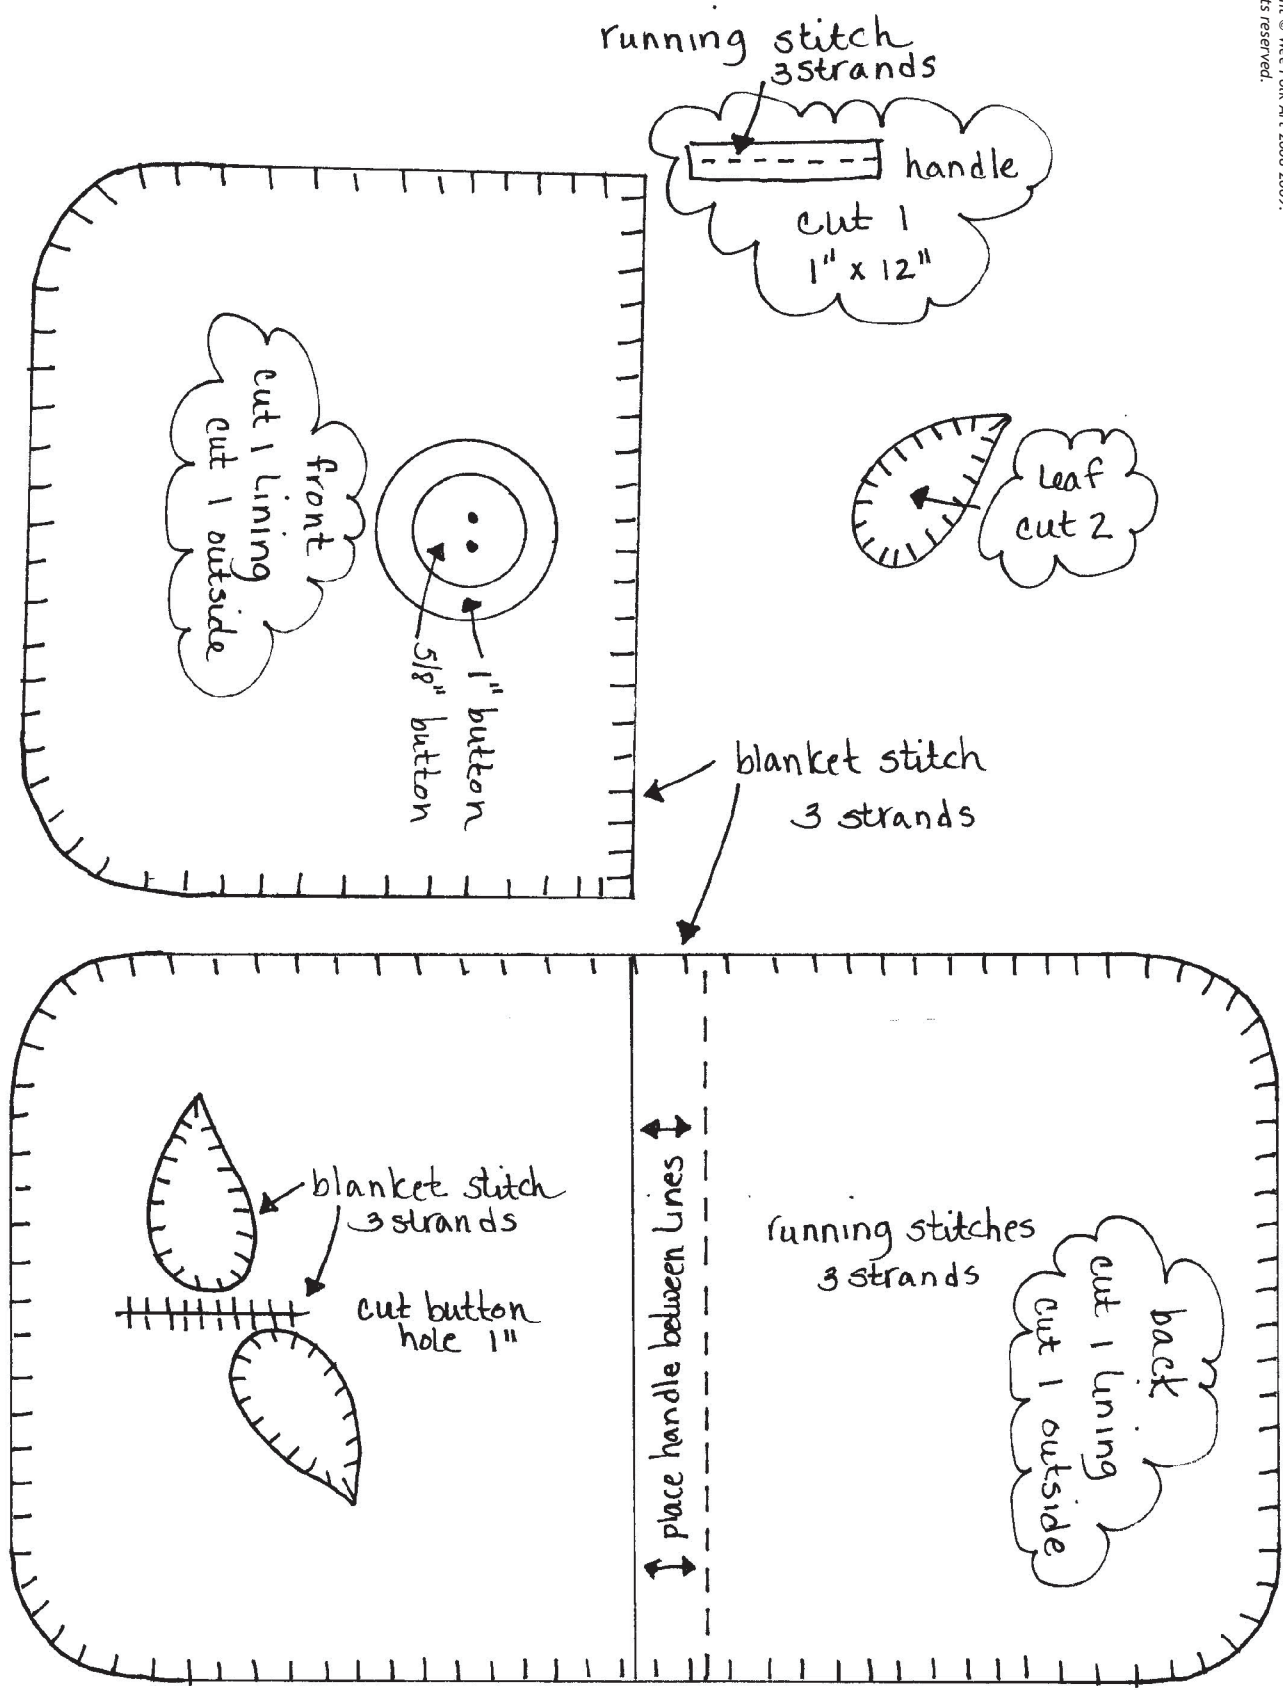 ts reserved.
running stitch
3 strands
handle
cut 1
1" x 12"
leaf
cut 2
front
cut 1 lining
cut 1 outside
1" button
5/8" button
blanket stitch
3 strands
blanket stitch
3 strands
cut button
hole 1"
place handle between lines
running stitches
3 strands
back
cut 1 lining
cut 1 outside